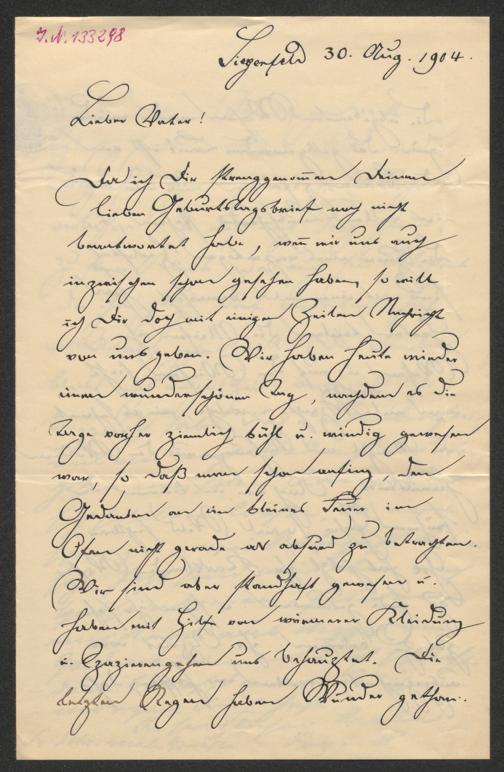 J.N. 133298
Siegenfeld 30. Aug. 1904.
Lieber Vater!
Da ich Dir strenggenommen Deinen
lieben Geburtstagsbrief noch nicht
beantwortet habe, weñ wir uns auch
inzwischen schon gesehen haben, so will
ich Dir doch mit einigen Zeilen Nachricht
von uns geben. Wir haben heute wieder
einen wunderschönen Tag, nachdem es die
Tage vorher ziemlich kühl u. windig gewesen
war, so daß man schon anfing, den
Gedanken an ein kleines Feuer im
Ofen nicht gerade als absurd zu betrachten.
Wir sind aber standhaft gewesen u.
haben mit Hilfe von wärmerer Kleidung
u. Spazierengehen uns behauptet. Die
letzten Regen haben Wunder gethan.